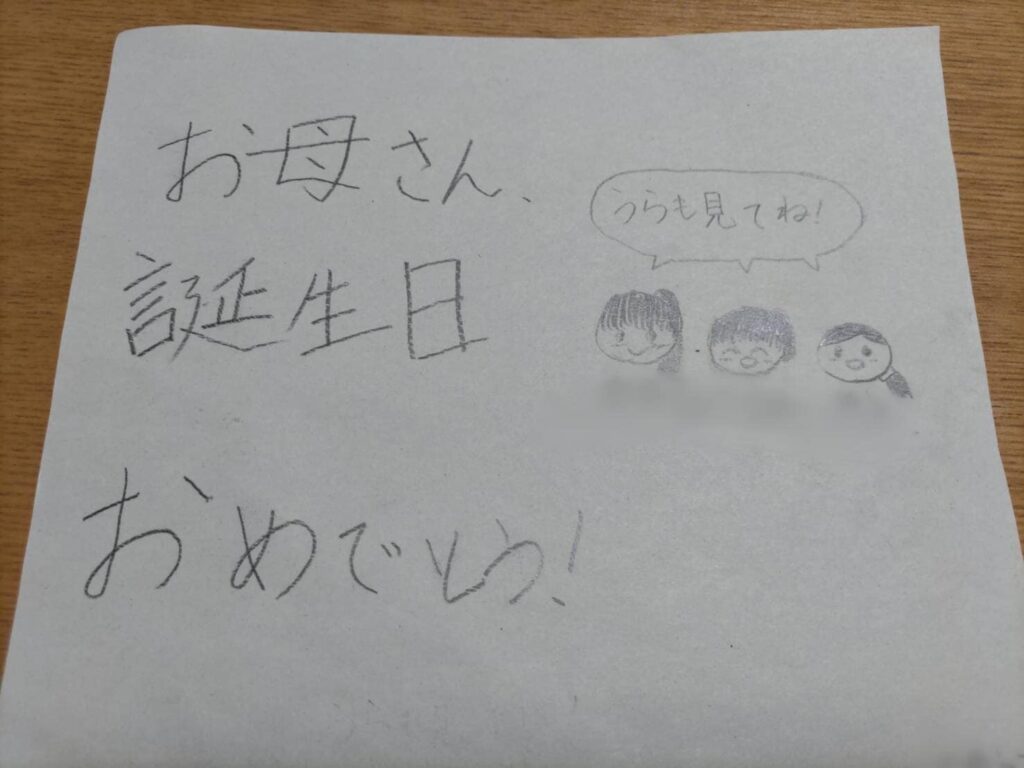 お母さん、
誕生日
おめでとう!
うらも見てね!